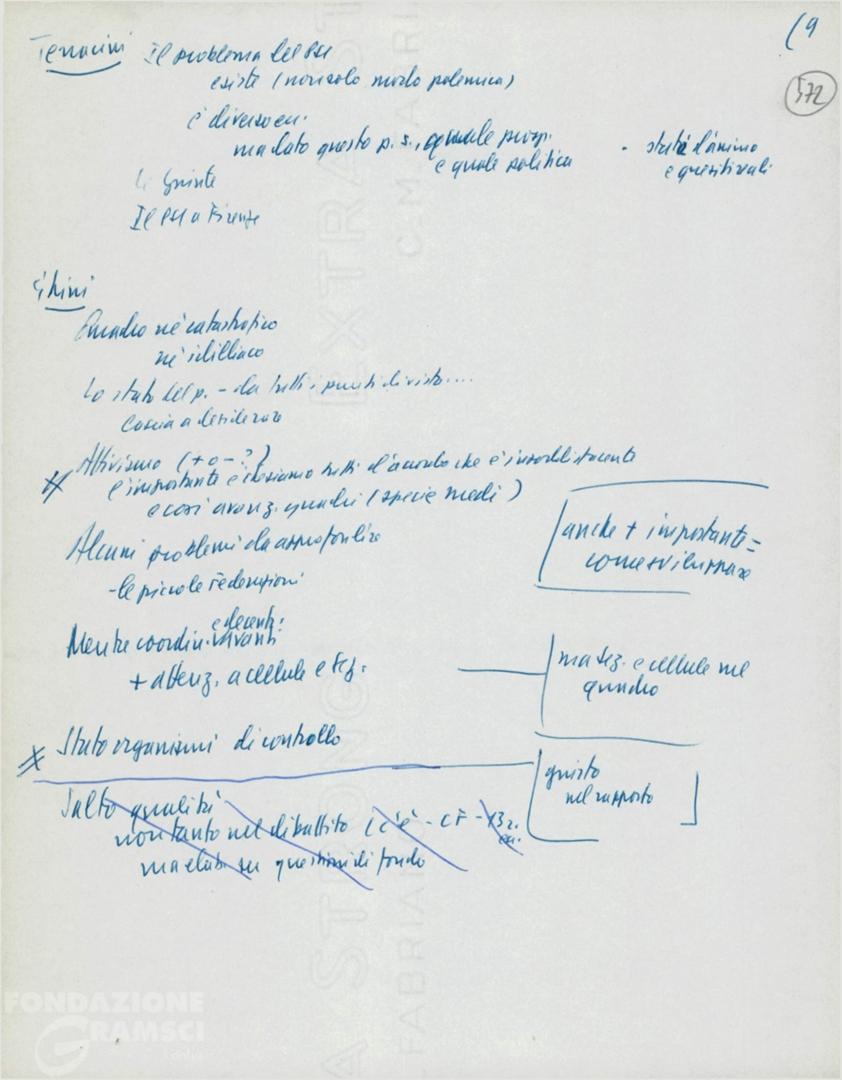 (9
572
Terracini Il problema del PSU
esiste (non solo modo polemica)
è diverso
ma dato questo p. s., quale prosp.
e quale politica
- stati d'animo
e quesiti reali
Le Giunte
Il PSU a Firenze
Ghini
Quadro né catastrofico
né idilliaco
Lo stato del p. - da tutti i punti di vista....
lascia a desiderare
Attivismo (+ o - ?)
è importante e che siamo tutti d'accordo che è insoddisfacente
e così avanz. quadri (specie medi)
anche + importante =
come sviluppare
Alcuni problemi da approfondire
- le piccole federazioni
Mentre coordin. e decentr.
avanti
+ attenz. a cellule e sez.
ma sez. e cellule nel
quadro
Stato organismi di controllo
giusto
nel rapporto
Salto qualità
non tanto nel dibattito (c'è - CF -
ma elab. su questioni di fondo
EXTRA STRONG
C. M. FABRIANO
FONDAZIONE
GRAMSCI